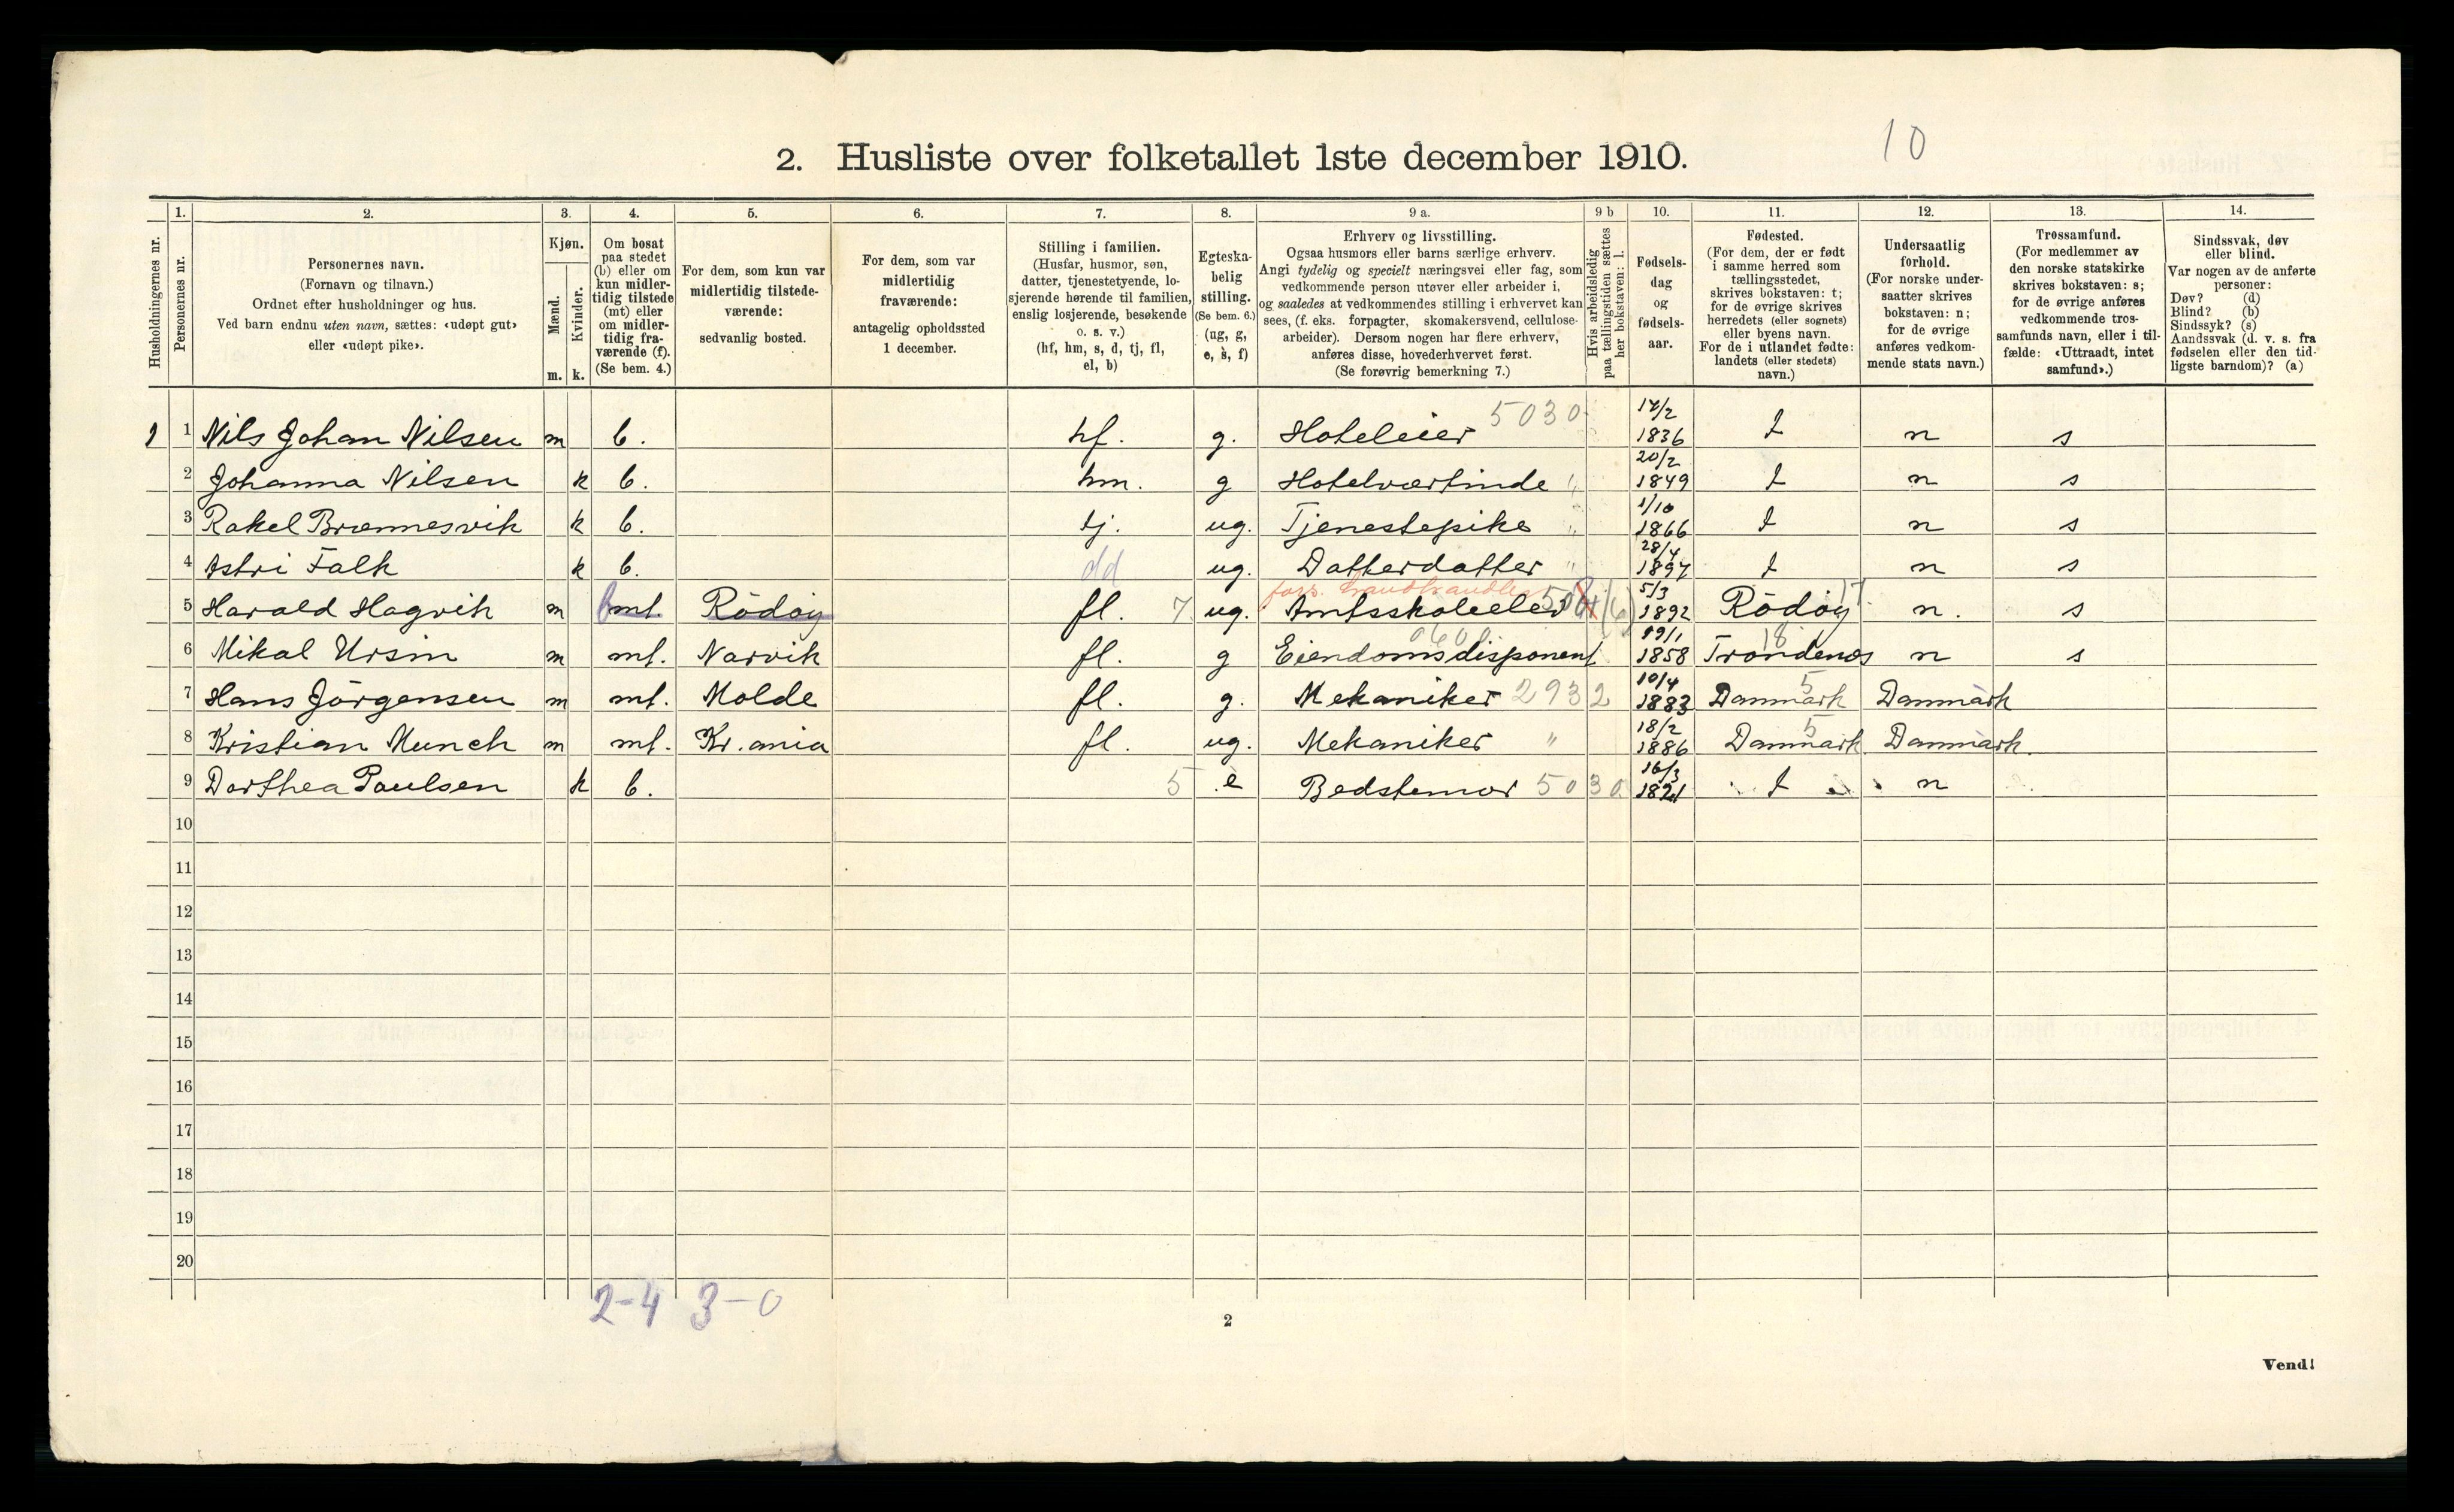 10
2. Husliste over folketallet 1ste december 1910.
Husholdningernes nr.
1.
Personernes nr.
2.
Personernes navn.
(Fornavn og tilnavn.)
Ordnet efter husholdninger og hus.
Ved barn endnu uten navn, sættes: «udøpt gut»
eller «udøpt pike».
3.
Kjøn.
Mænd.
Kvinder.
m. k.
4.
Om bosat
paa stedet
(b) eller om
kun midler-
tidig tilstede
(mt) eller
om midler-
tidig fra-
værende (f).
(Se bem. 4.)
5.
For dem, som kun var
midlertidig tilstede-
værende:
sedvanlig bosted.
6.
For dem, som var
midlertidig
fraværende:
antagelig opholdssted
1 december.
7.
Stilling i familien.
(Husfar, husmor, søn,
datter, tjenestetyende, lo-
sjerende hørende til familien,
enslig losjerende, besøkende
o. s. v.)
(hf, hm, s, d, tj, fl,
el, b)
8.
Egteska-
belig
stilling.
(Se bem. 6.)
(ug, g,
e, s, f)
9 a.
Erhverv og livsstilling.
Ogsaa husmors eller barns særlige erhverv.
Angi tydelig og specielt næringsvei eller fag, som
vedkommende person utøver eller arbeider i,
og saaledes at vedkommendes stilling i erhvervet kan
sees, (f. eks. forpagter, skomakersvend, cellulose-
arbeider). Dersom nogen har flere erhverv,
anføres disse, hovederhvervet først.
(Se forøvrig bemerkning 7.)
9 b
Hvis arbeidsledig
paa tællingstiden sættes
her bokstaven: l.
10.
Fødsels-
dag
og
fødsels-
aar.
11.
Fødested.
(For dem, der er født
i samme herred som
tællingsstedet,
skrives bokstaven: t;
for de øvrige skrives
herredets (eller sognets)
eller byens navn.
For de i utlandet fødte:
landets (eller stedets)
navn.)
12.
Undersaatlig
forhold.
(For norske under-
saatter skrives
bokstaven: n;
for de øvrige
anføres vedkom-
mende stats navn.)
13.
Trossamfund.
(For medlemmer av
den norske statskirke
skrives bokstaven: s;
for de øvrige anføres
vedkommende tros-
samfunds navn, eller i til-
fælde: «Uttraadt, intet
samfund».)
14.
Sindssvak, døv
eller blind.
Var nogen av de anførte
personer:
Døv? (d)
Blind? (b)
Sindssyk? (s)
Aandssvak (d. v. s. fra
fødselen eller den tid-
ligste barndom)? (a)
1 1 Nils Johan Nilsen m b. hf. g. Hoteleier 5030 1836 t n s
2 Johanna Nilsen k b. hm. g Hotelværtinde " 20/2 1849 t n s
3 Rakel Brænnesvik k b. tj. ug. Tjenestepike " 1/10 1866 t n s
4 Astri Falk k b. dd ug. Datterdatter " 28/4 1897 t n s
5 Harald Hagvik m b mt. Rödöy fl. 7 ug. fors. Landhandler Amtsskoleelev 5/3 1892 Rödöy 17 n. s
6 Mikal Ursin m mt. Narvik fl. g Eiendomsdisponent 0600 19/1 1858 Trondenes 18 n s
7 Hans Jörgensen m mt. Molde fl. g. Mekaniker 2932 10/4 1883 Danmark 5 Danmark
8 Kristian Munch m mt. Kr.ania fl. ug. Mekaniker " 18/2 1886 Danmark 5 Danmark.
9 Dorthea Paulsen k b. 5 e Bedstemor 5030 16/3 1821 t n
10
11
12
13
14
15
16
17
18
19
20
2-4 3-0
2
Vend!